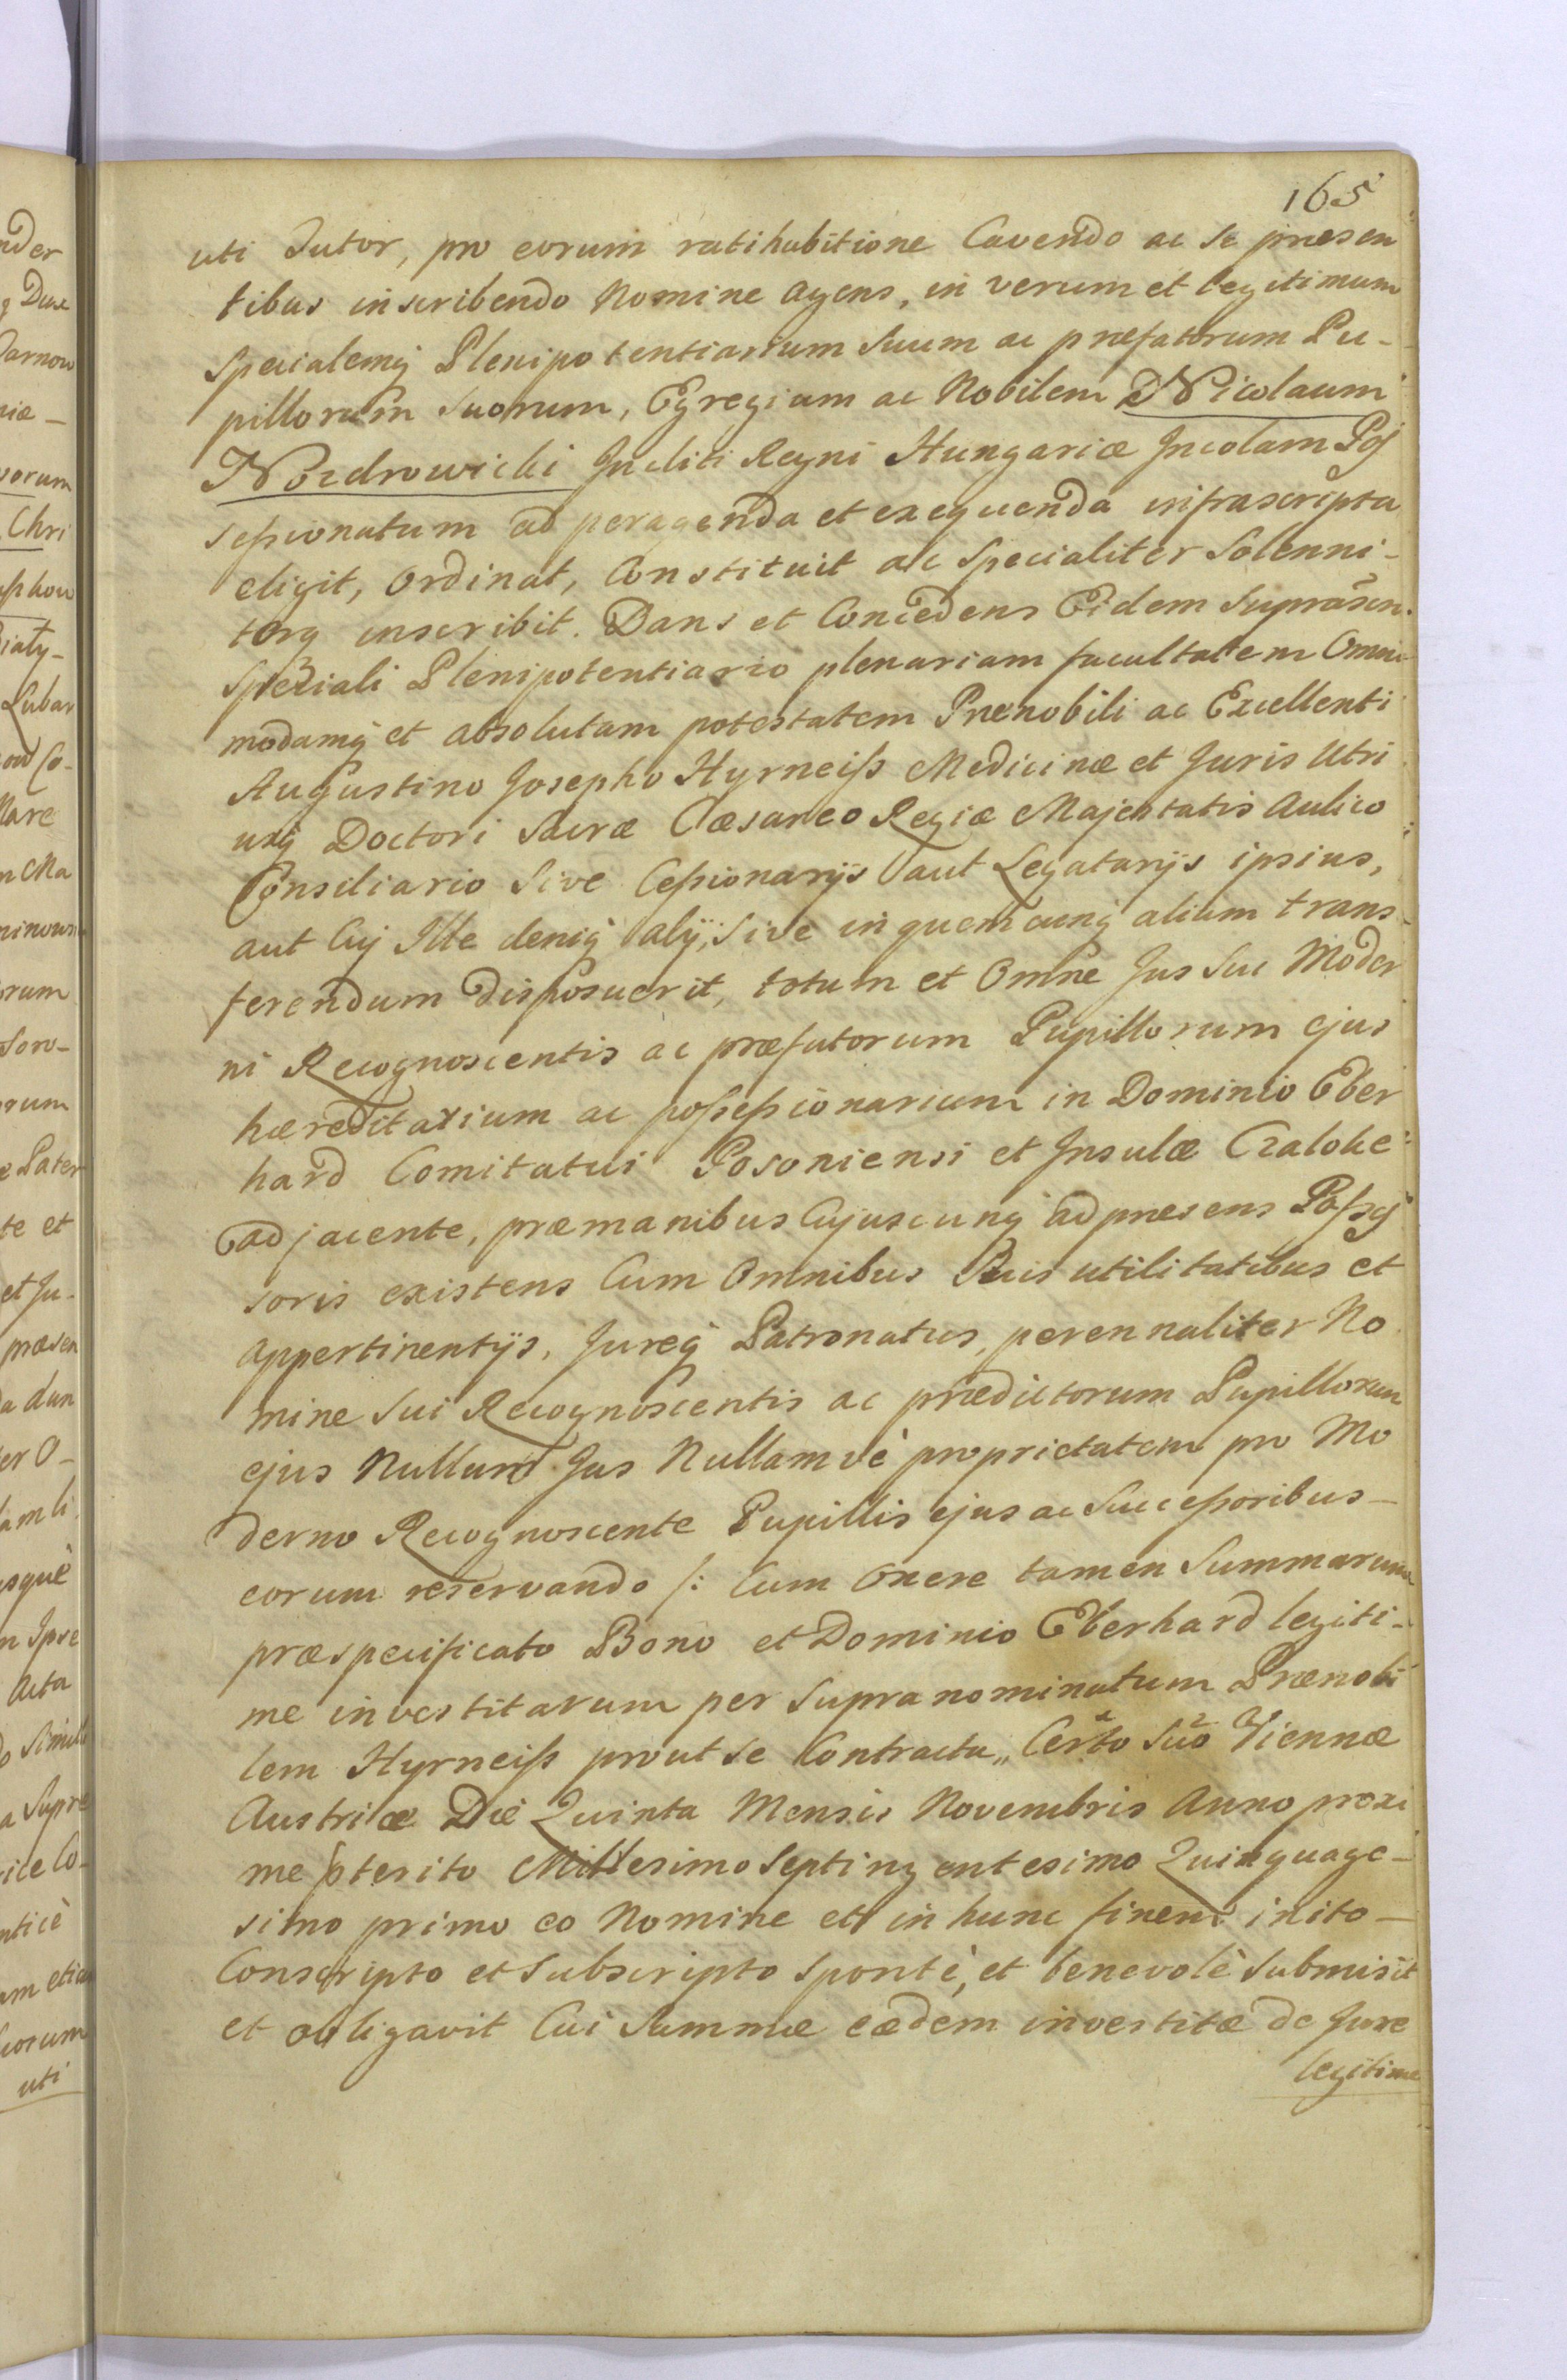 165
uti Tutor, pro eorum ratihabitione Cavendo ac se præsen
tibus inscribendo Nomine agens, in verum et legitimum
specialemq Plenipotentiarium Suum ac præfatorum Pu-
pillorum Suorum, Egregium ac Nobilem Nicolaum
Nozdrowicki Incliti Regni Hungariæ Incolam Pos
sessionatum ad peragenda et exequenda infrascripta
eligit, Ordinat, Constituit ac Specialiter Solenni-
terq inscribit. Dans et Concedens Eidem Suprascri.
Speciali Plenipotentiario plenariam facultatem Omni
modamq et absolutam potestatem Prænobili ac Excellenti
Augustino Josepho Hyrneiss Medicinæ et Juris Utri
usq Doctori Sacræ Cæsareo Regiæ Majestatis Aulico
Consiliario Sive Cessionarijs aut Legatarijs ipsius,
aut Cuj Ille deniq alij, Sive in quemcunq alium trans
ferendum disposuerit, totum et Omne Jus Sui Moder
ni Recognoscentis ac præfatorum Pupillorum ejus
hæreditarium ac possessionarium in Dominio Eber
hard Comitatui Posoniensi et Insulæ Czaloke
adjacente, præmanibus Cujuscunq ad præsens Posses
soris existens Cum Omnibus Suis utilitatibus et
appertinentijs, Jureq Patronatus, perennaliter No
mine Sui Recognoscentis ac prædictorum Pupillorum
ejus Nullum Jus Nullamvè proprietatem pro Mo
derno Recognoscente Pupillis ejus ac Successoribus-
eorum reservando /: Cum Onere tamen Summarum
præspecificato Bono et Dominio Eberhard legiti-
me investitarum per Supranominatum Prænobi
lem Hyrneiss prout se Contractu,, Certo Suo Viennæ
Austriæ Die Quinta Mensis Novembris Anno proxi
me pterito Millesimo Septingentesimo Quinquage-
simo primo eo Nomine et in hunc finem inito-
Conscripto et Subscripto Spontè, et benevolè Submisit
et obligavit Cui Summæ eædem investitæ de Jure
legitime